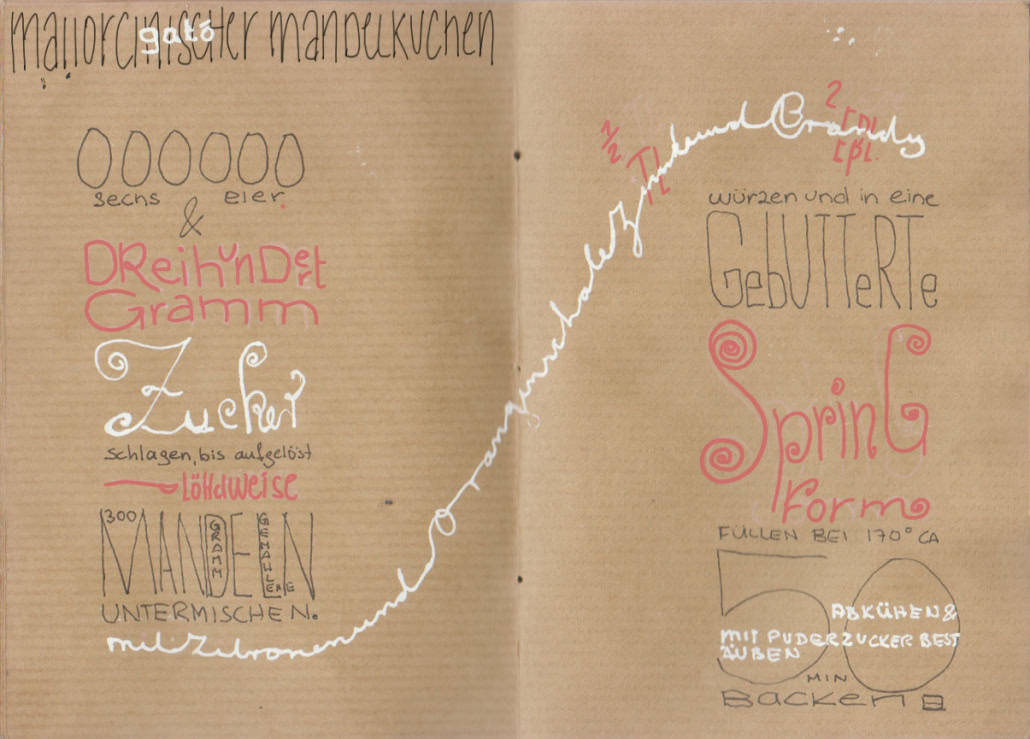 mallorcinischer mandelkuchen
gató
sechs eier.
&
DReihunDert
Gramm
Zucker
schlagen, bis aufgelöst
löffelweise
300 MANDELN
GRAMM
GEMAHLENE
UNTERMISCHEN.
mit Zitronen und Orangenschale Zimt und Brandy
1/2 TL
2 EßL.
würzen und in eine
GebUTTeRTe
SprinG
Form
FÜLLEN BEI 170° CA
50
ABKÜHEN &
MIT PUDERZUCKER BEST
ÄUBEN
MIN
Backen